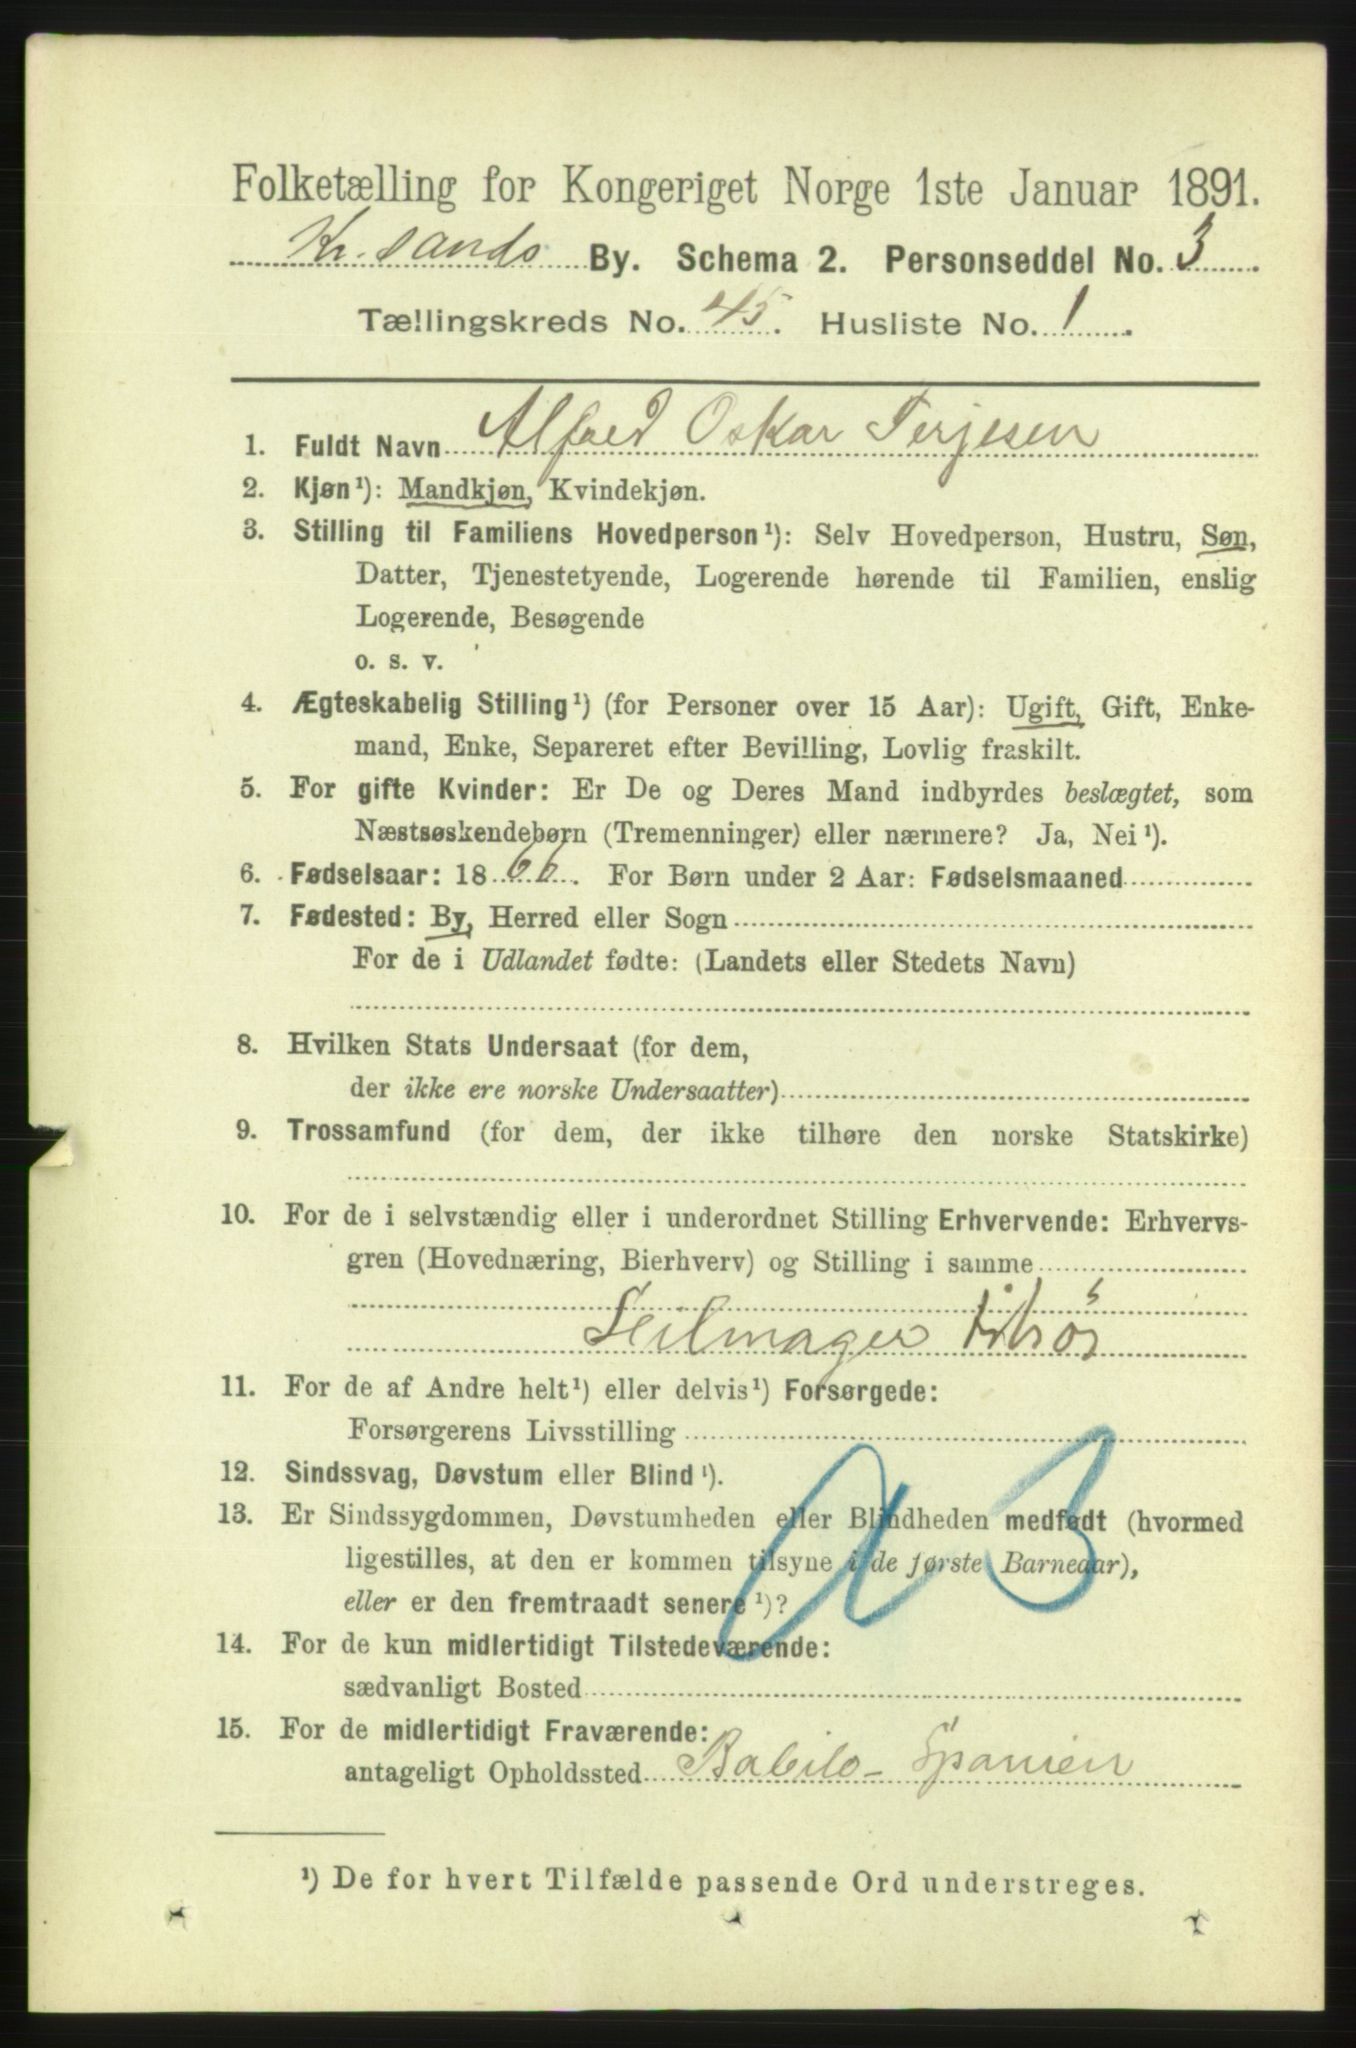 Folketælling for Kongeriget Norge 1ste Januar 1891.
Kr. sands By. Schema 2. Personseddel No. 3
Tællingskreds No. 45. Husliste No. 1.
1. Fuldt Navn Alfred Oskar Terjesen
2. Kjøn¹): Mandkjøn, Kvindekjøn.
3. Stilling til Familiens Hovedperson¹): Selv Hovedperson, Hustru, Søn,
Datter, Tjenestetyende, Logerende hørende til Familien, enslig
Logerende, Besøgende
o. s. v.
4. Ægteskabelig Stilling¹) (for Personer over 15 Aar): Ugift, Gift, Enke-
mand, Enke, Separeret efter Bevilling, Lovlig fraskilt.
5. For gifte Kvinder: Er De og Deres Mand indbyrdes beslægtet, som
Næstsøskendebørn (Tremenninger) eller nærmere? Ja, Nei¹).
6. Fødselsaar: 1866. For Børn under 2 Aar: Fødselsmaaned
7. Fødested: By, Herred eller Sogn
For de i Udlandet fødte: (Landets eller Stedets Navn)
8. Hvilken Stats Undersaat (for dem,
der ikke ere norske Undersaatter)
9. Trossamfund (for dem, der ikke tilhøre den norske Statskirke)
10. For de i selvstændig eller i underordnet Stilling Erhvervende: Erhvervs-
gren (Hovednæring, Bierhverv) og Stilling i samme
Seilmager tilsös
11. For de af Andre helt¹) eller delvis¹) Forsørgede:
Forsørgerens Livsstilling
12. Sindssvag, Døvstum eller Blind¹).
13. Er Sindssygdommen, Døvstumheden eller Blindheden medfødt (hvormed
ligestilles, at den er kommen tilsyne i de første Barneaar),
eller er den fremtraadt senere¹)?
14. For de kun midlertidigt Tilstedeværende:
sædvanligt Bosted
15. For de midlertidigt Fraværende:
antageligt Opholdssted Babilo - Spanien
¹) De for hvert Tilfælde passende Ord understreges.